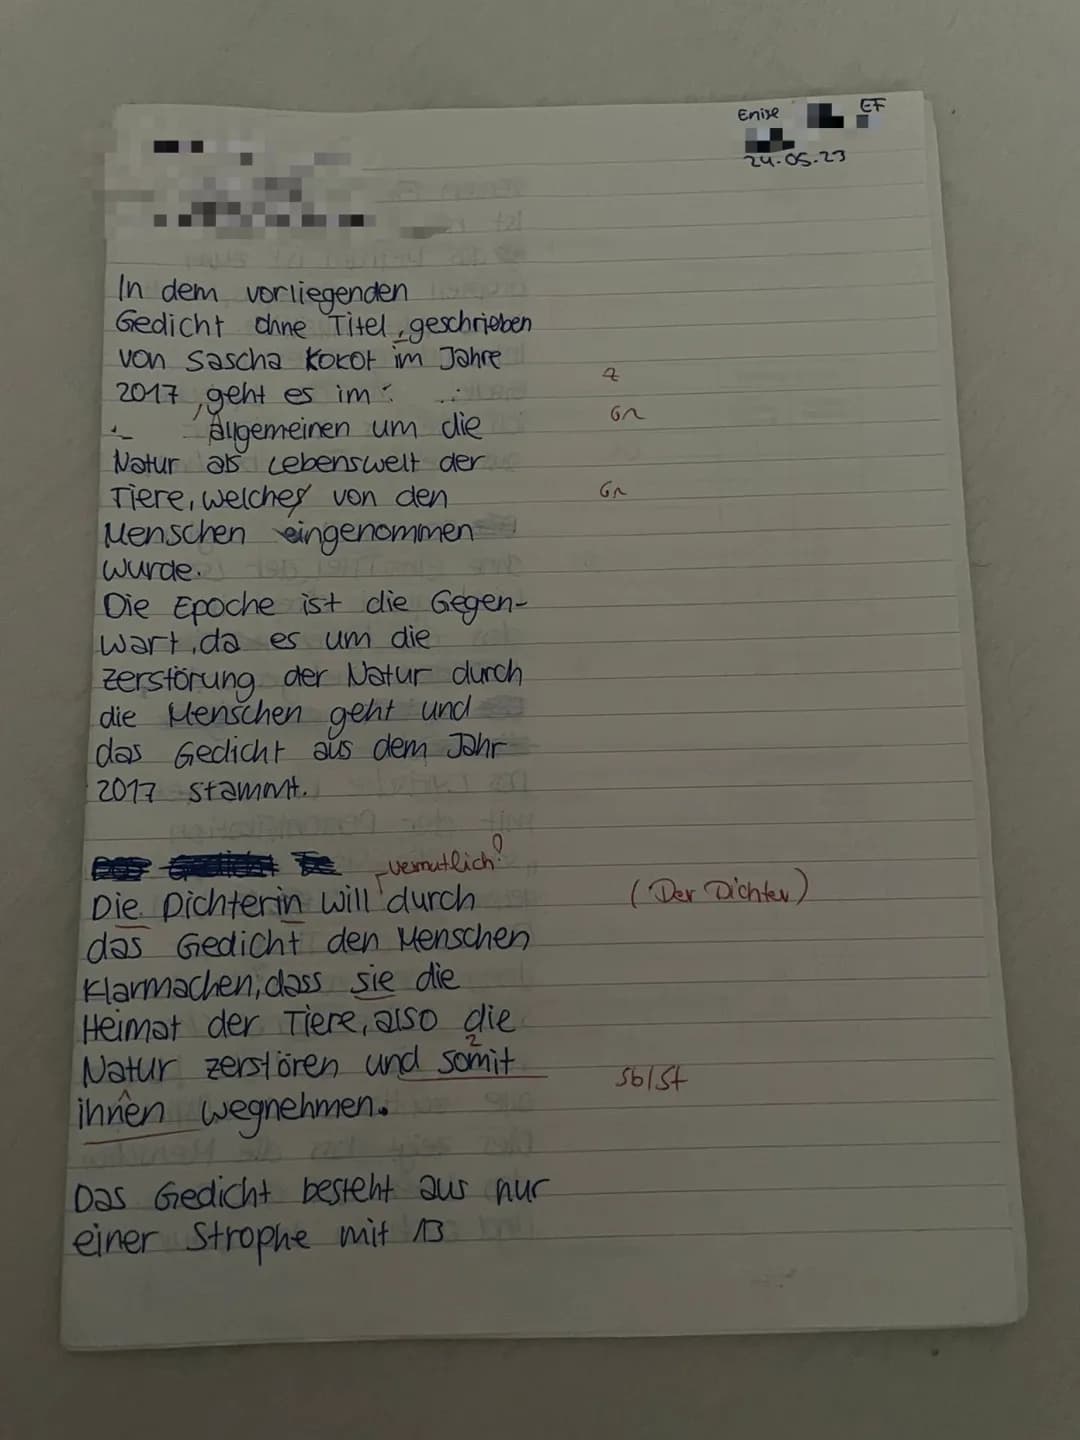 Enise EF
24.05.23
In dem vorliegenden
Gedicht ohne Titel, geschrieben
von Sascha Kokot im Jahre
2017, geht es im
Z
allgemeinen um die
Gr
Natur als Lebenswelt der
Tiere, welches von den
Gr
Menschen eingenommen
wurde.
Die Epoche ist die Gegen-
wart, da es um die
Zerstörung der Natur durch
die Menschen geht und
das Gedicht aus dem Jahr
2017 stammt.
vermutlich?
Die Dichterin will durch
(Der Dichter)
das Gedicht den Menschen
klarmachen, dass sie die
Heimat der Tiere, also die
Natur zerstören und somit
Sb/St
ihnen wegnehmen.
Das Gedicht besteht aus nur
einer Strophe mit 13